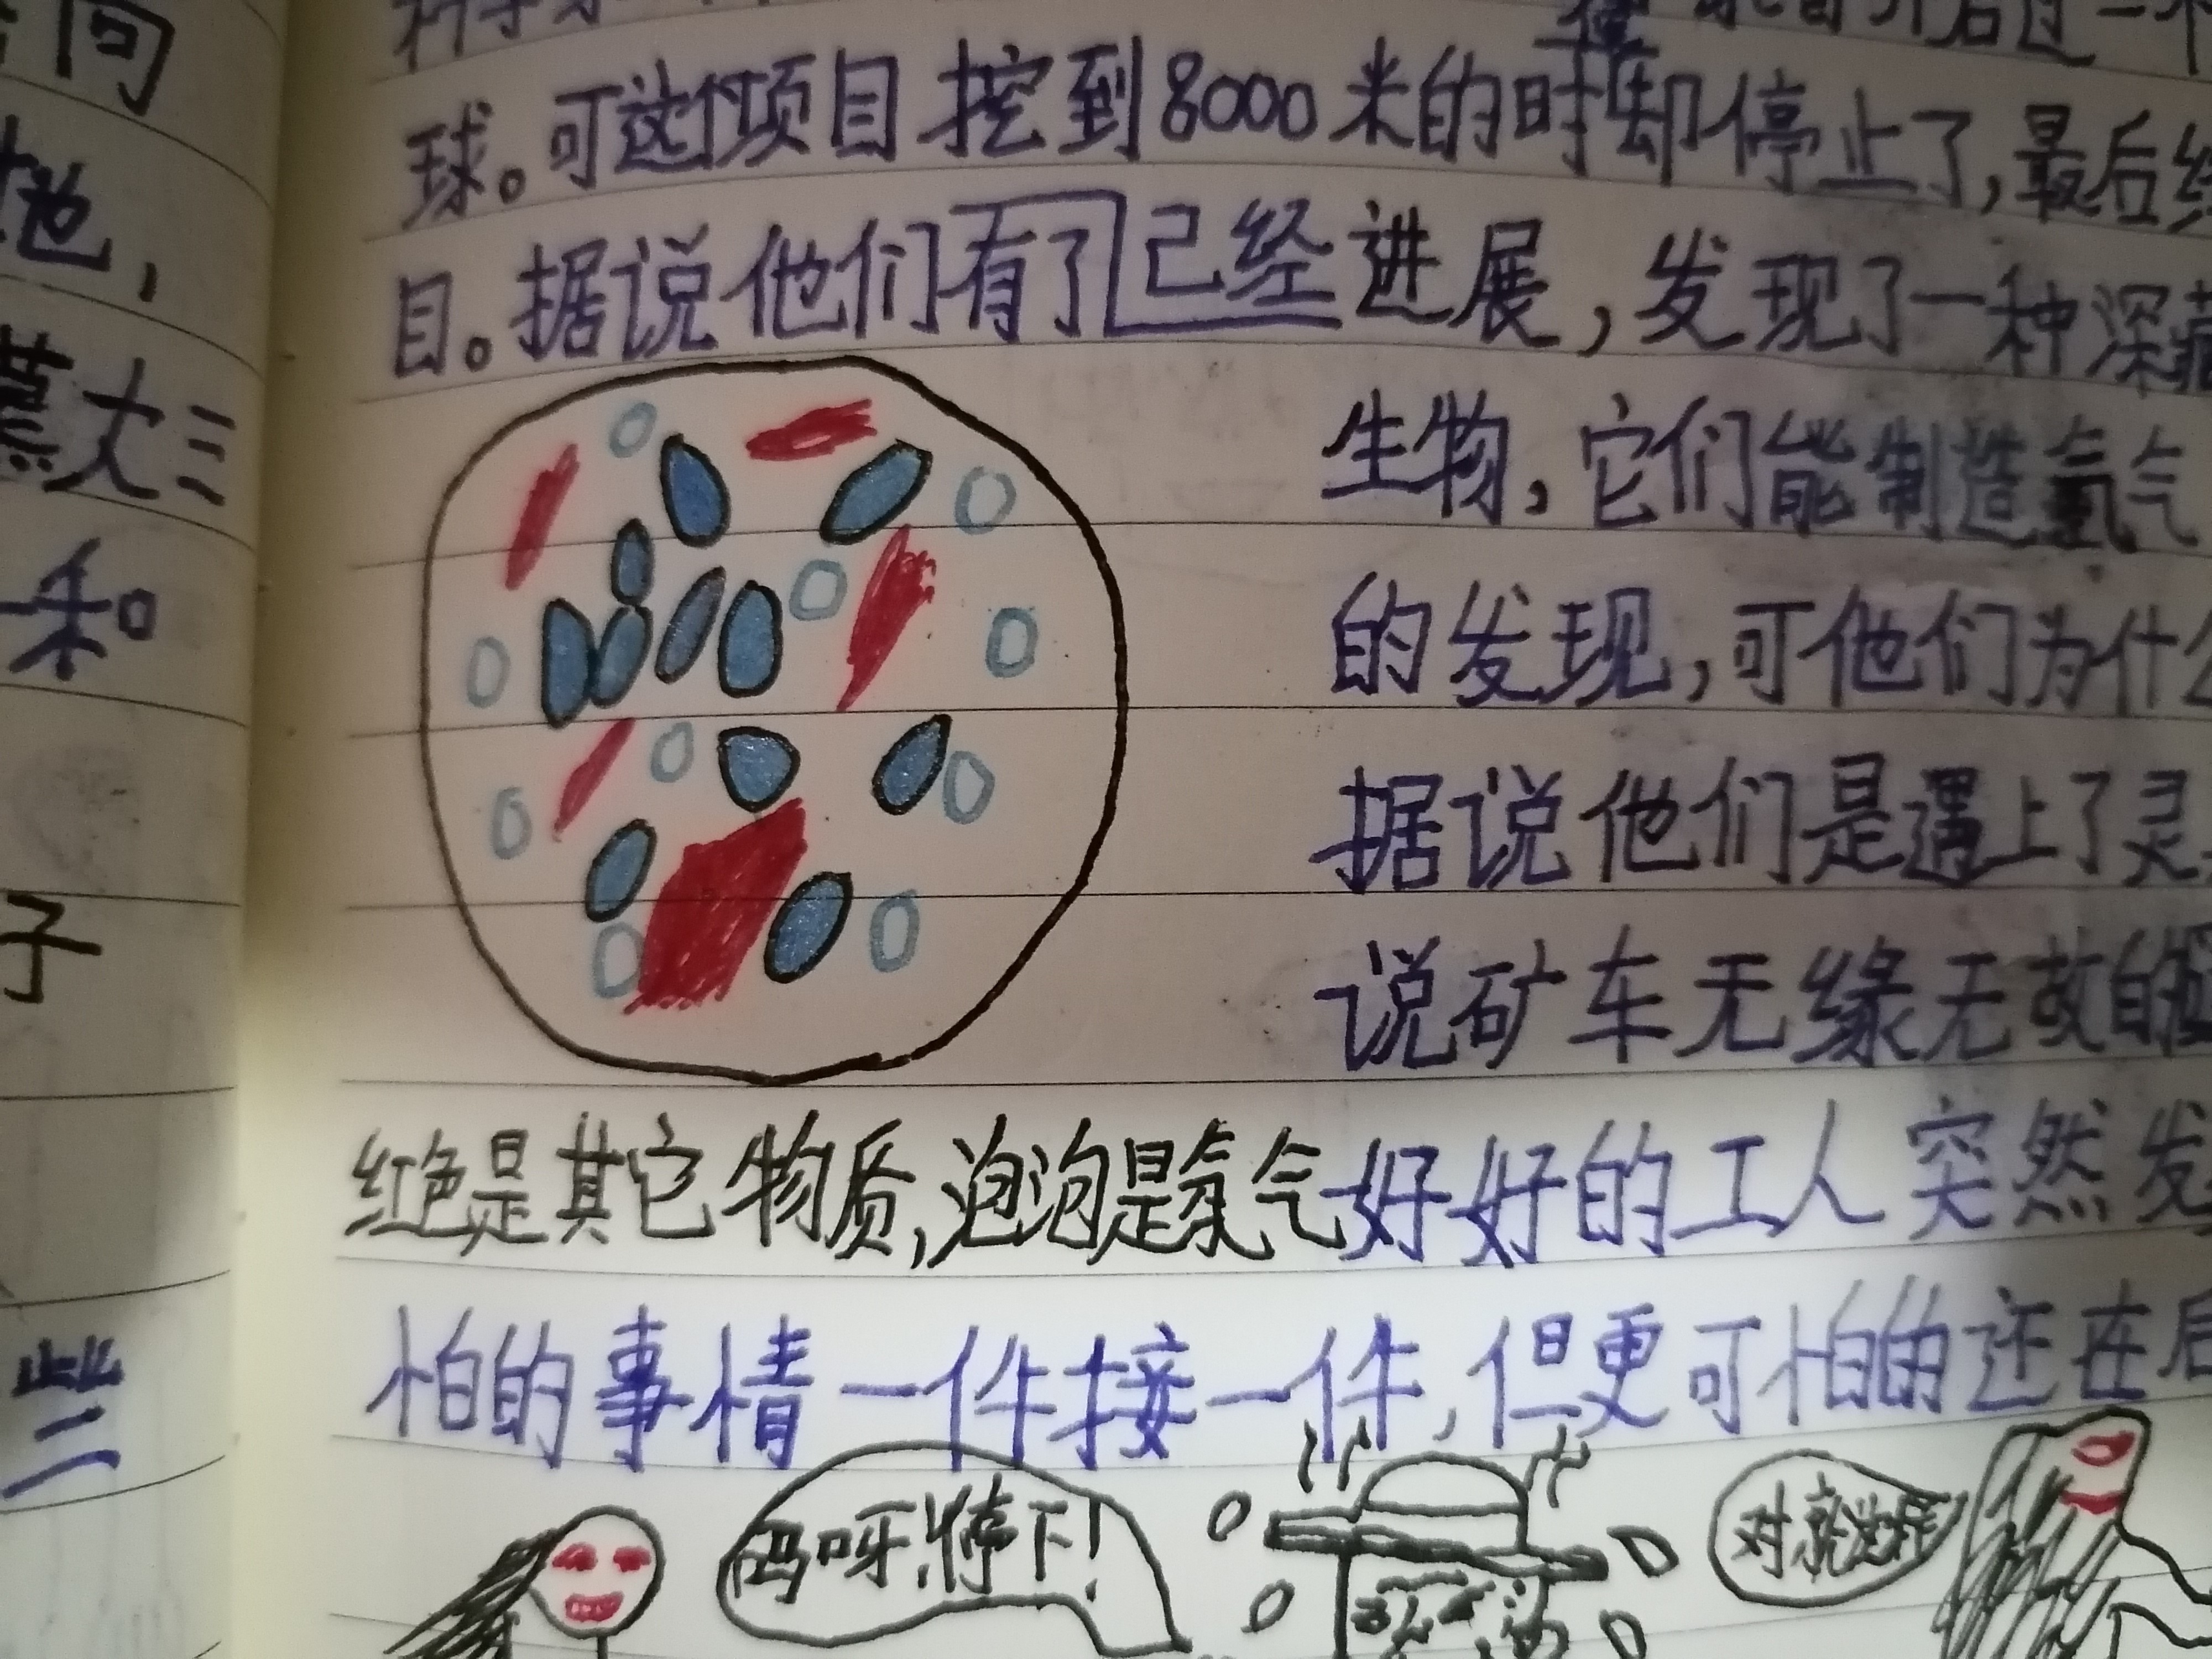 问
球。可这个项目挖到8000米的时候却停止了,最后
目。据说他们有了已经进展,发现了一种深藏
地,
生物,它们能制造氧气
慕大三
的发现,可他们为什么
和
据说他们是遇上了灵
子
说矿车无缘无故的
红色是其它物质,泡泡是氧气
好好的工人突然发
些
怕的事情一件接一件,但更可怕的还在后
妈呀!停下!
对就这样